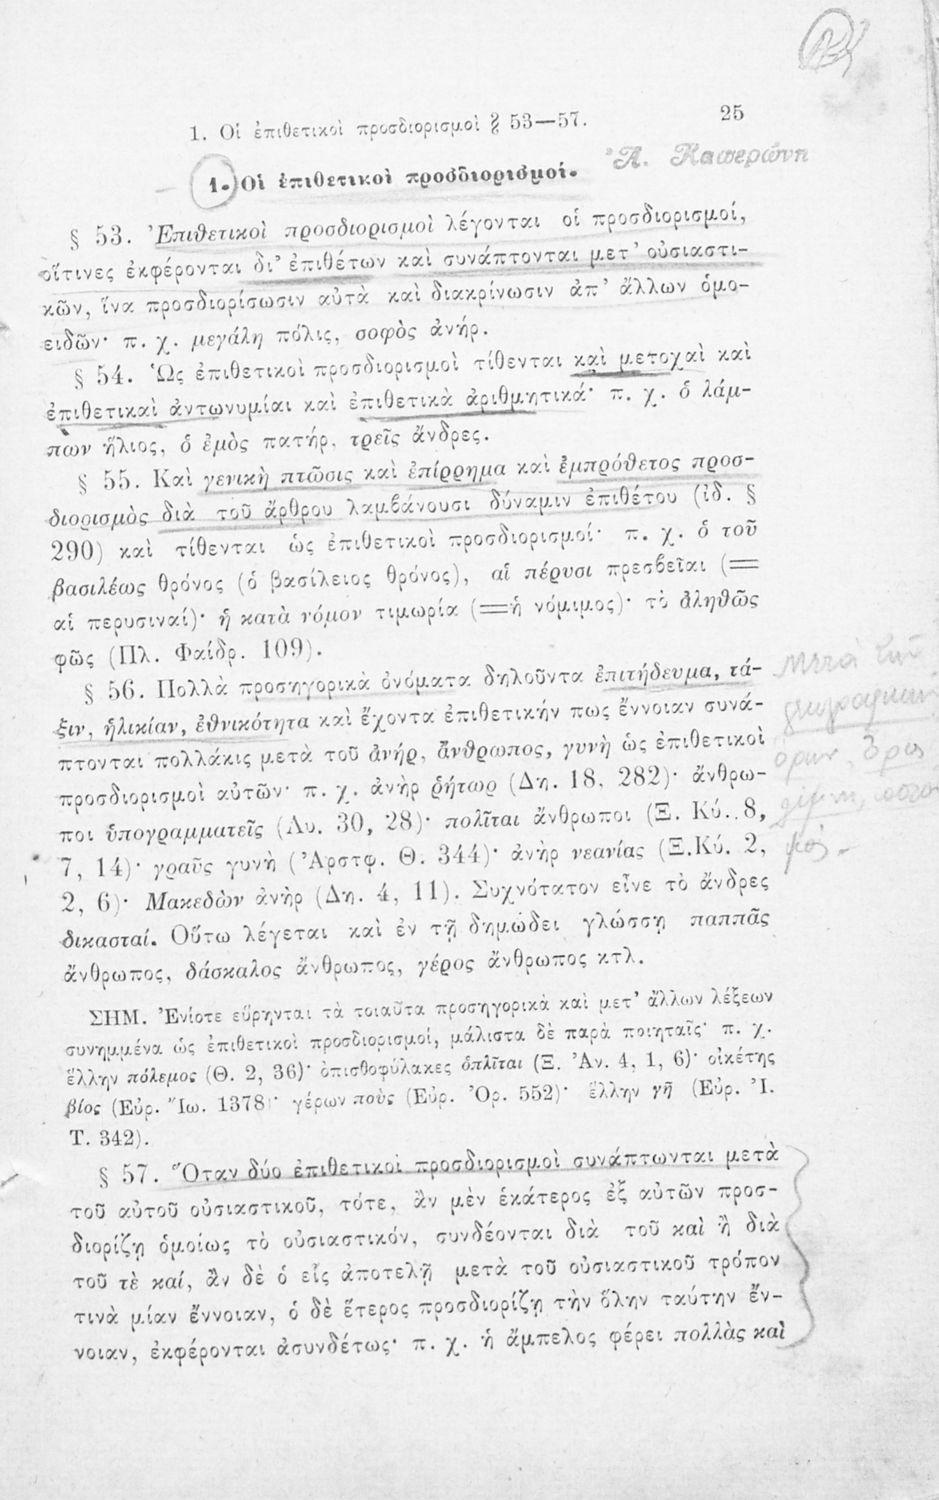 1. Οἱ ἐπιθετικοὶ προσδιορισμοὶ § 53—57.
25
Ἀ. Κασερώνη
1. Οἱ ἐπιθετικοὶ προσδιορισμοί.
§ 53. Ἐπιθετικοὶ προσδιορισμοὶ λέγονται οἱ προσδιορισμοί,
οἵτινες ἐκφέρονται δι’ ἐπιθέτων καὶ συνάπτονται μετ’ οὐσιαστι-
κῶν, ἵνα προσδιορίσωσιν αὐτὰ καὶ διακρίνωσιν ἀπ’ ἄλλων ὁμο-
ειδῶν· π. χ. μεγάλη πόλις, σοφὸς ἀνήρ.
§ 54. Ὡς ἐπιθετικοὶ προσδιορισμοὶ τίθενται καὶ μετοχαὶ καὶ
ἐπιθετικαὶ ἀντωνυμίαι καὶ ἐπιθετικὰ ἀριθμητικά· π. χ. ὁ λάμ-
πων ἥλιος, ὁ ἐμὸς πατήρ, τρεῖς ἄνδρες.
§ 55. Καὶ γενικὴ πτῶσις καὶ ἐπίρρημα καὶ ἐμπρόθετος προσ-
διορισμὸς διὰ τοῦ ἄρθρου λαμβάνουσι δύναμιν ἐπιθέτου (ἰδ. §
290) καὶ τίθενται ὡς ἐπιθετικοὶ προσδιορισμοί· π. χ. ὁ τοῦ
βασιλέως θρόνος (ὁ βασίλειος θρόνος), αἱ πέρυσι πρεσβεῖαι (=
αἱ περυσιναί)· ἡ κατὰ νόμον τιμωρία (=ἡ νόμιμος)· τὸ ἀληθῶς
φῶς (Πλ. Φαίδρ. 109).
§ 56. Πολλὰ προσηγορικὰ ὀνόματα δηλοῦντα ἐπιτήδευμα, τά-
ξιν, ἡλικίαν, ἐθνικότητα καὶ ἔχοντα ἐπιθετικήν πως ἔννοιαν συνά-
πτονται πολλάκις μετὰ τοῦ ἀνήρ, ἄνθρωπος, γυνὴ ὡς ἐπιθετικοὶ
προσδιορισμοὶ αὐτῶν· π. χ. ἀνὴρ ῥήτωρ (Δη. 18, 282)· ἄνθρω-
ποι ὑπογραμματεῖς (Λυ. 30, 28)· πολῖται ἄνθρωποι (Ξ. Κύ. 8,
7, 14)· γραῦς γυνὴ (Ἀρστφ. Θ. 344)· ἀνὴρ νεανίας (Ξ.Κύ. 2,
2, 6)· Μακεδὼν ἀνὴρ (Δη. 4, 11). Συχνότατον εἶνε τὸ ἄνδρες
δικασταί. Οὕτω λέγεται καὶ ἐν τῇ δημώδει γλώσσῃ παππᾶς
ἄνθρωπος, δάσκαλος ἄνθρωπος, γέρος ἄνθρωπος κτλ.
ΣΗΜ. Ἐνίοτε εὕρηνται τὰ τοιαῦτα προσηγορικὰ καὶ μετ’ ἄλλων λέξεων
συνημμένα ὡς ἐπιθετικοὶ προσδιορισμοί, μάλιστα δὲ παρὰ ποιηταῖς· π. χ.
ἕλλην πόλεμος (Θ. 2, 36)· ὀπισθοφύλακες ὁπλῖται (Ξ. Ἀν. 4, 1, 6)· οἰκέτης
βίος (Εὐρ. Ἴω. 1378)· γέρων ποὺς (Εὐρ. Ὀρ. 552)· ἕλλην γῆ (Εὐρ. Ἰ.
Τ. 342).
§ 57. Ὅταν δύο ἐπιθετικοὶ προσδιορισμοὶ συνάπτωνται μετὰ
τοῦ αὐτοῦ οὐσιαστικοῦ, τότε, ἂν μὲν ἑκάτερος ἐξ αὐτῶν προσ-
διορίζῃ ὁμοίως τὸ οὐσιαστικόν, συνδέονται διὰ τοῦ καὶ ἢ διὰ
τοῦ τὲ καί, ἂν δὲ ὁ εἷς ἀποτελῇ μετὰ τοῦ οὐσιαστικοῦ τρόπον
τινὰ μίαν ἔννοιαν, ὁ δὲ ἕτερος προσδιορίζῃ τὴν ὅλην ταύτην ἔν-
νοιαν, ἐκφέρονται ἀσυνδέτως· π. χ. ἡ ἄμπελος φέρει πολλὰς καὶ